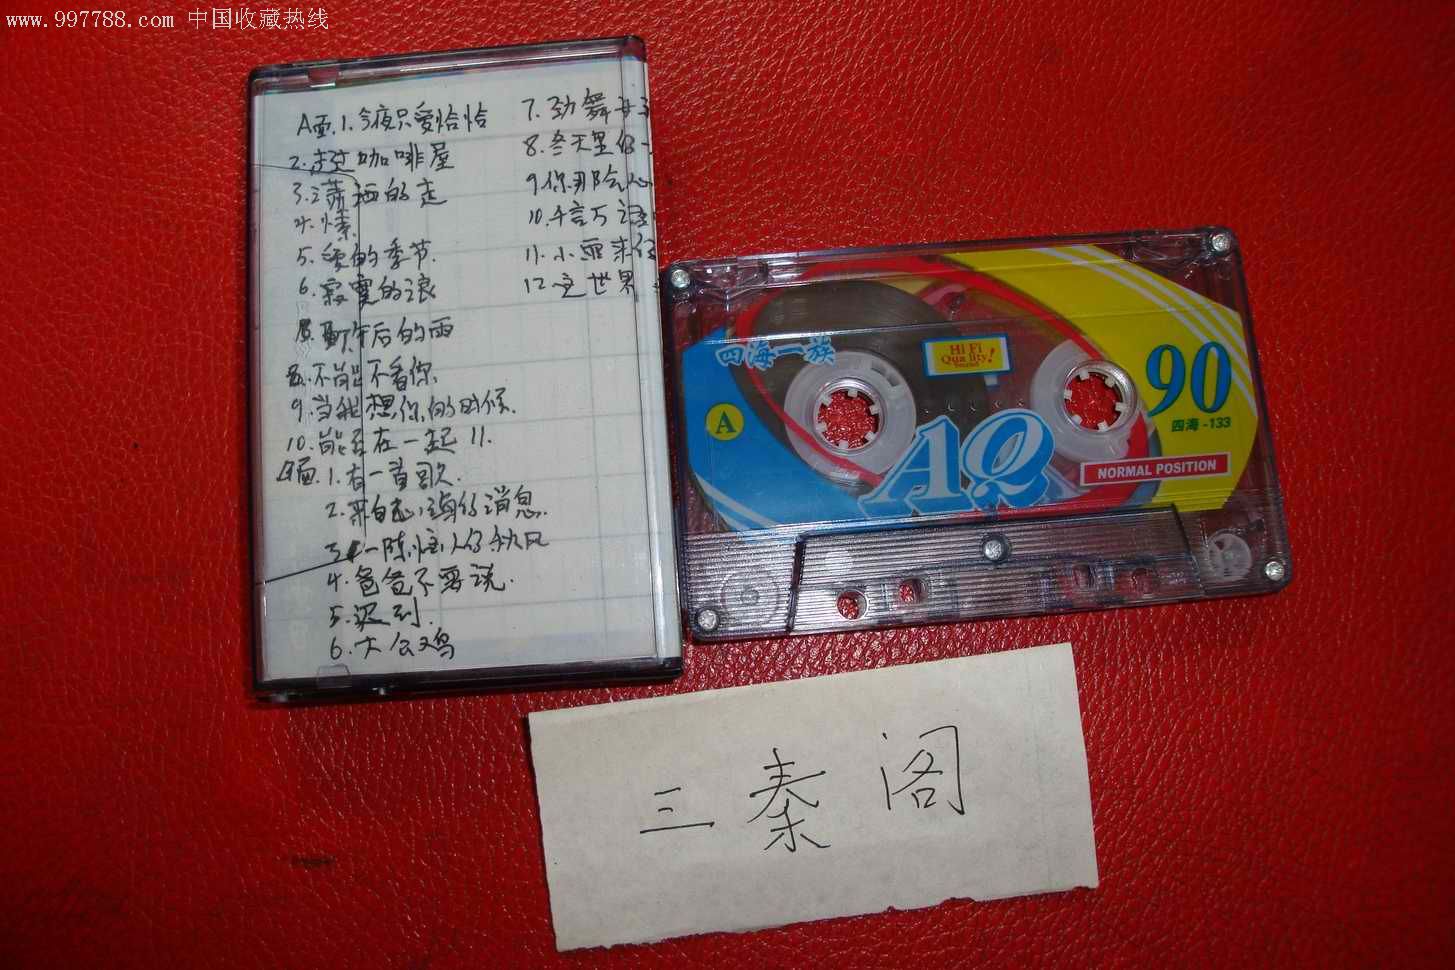 www.997788.com 中国收藏热线
A面.1.今夜只爱恰恰
2.  咖啡屋
3.潇洒的走
4.愫
5.  的季节.
6.寂寞的浪
午后的雨
不能不看你.
9.当我想你的时候.
10.能否在一起 11.
B面.1.有一首歌.
2.来自心海的消息.
3.一阵恼人的秋风
4.爸爸不要说.
5.迟到.
6.大公鸡
7.劲舞
8.冬天里的一
9.你那 会心
10.千言万语
11.小雨来得
12.这世界
四海一族
Hi Fi
Quality!
A
90
四海-133
AQ
NORMAL POSITION
三秦阁